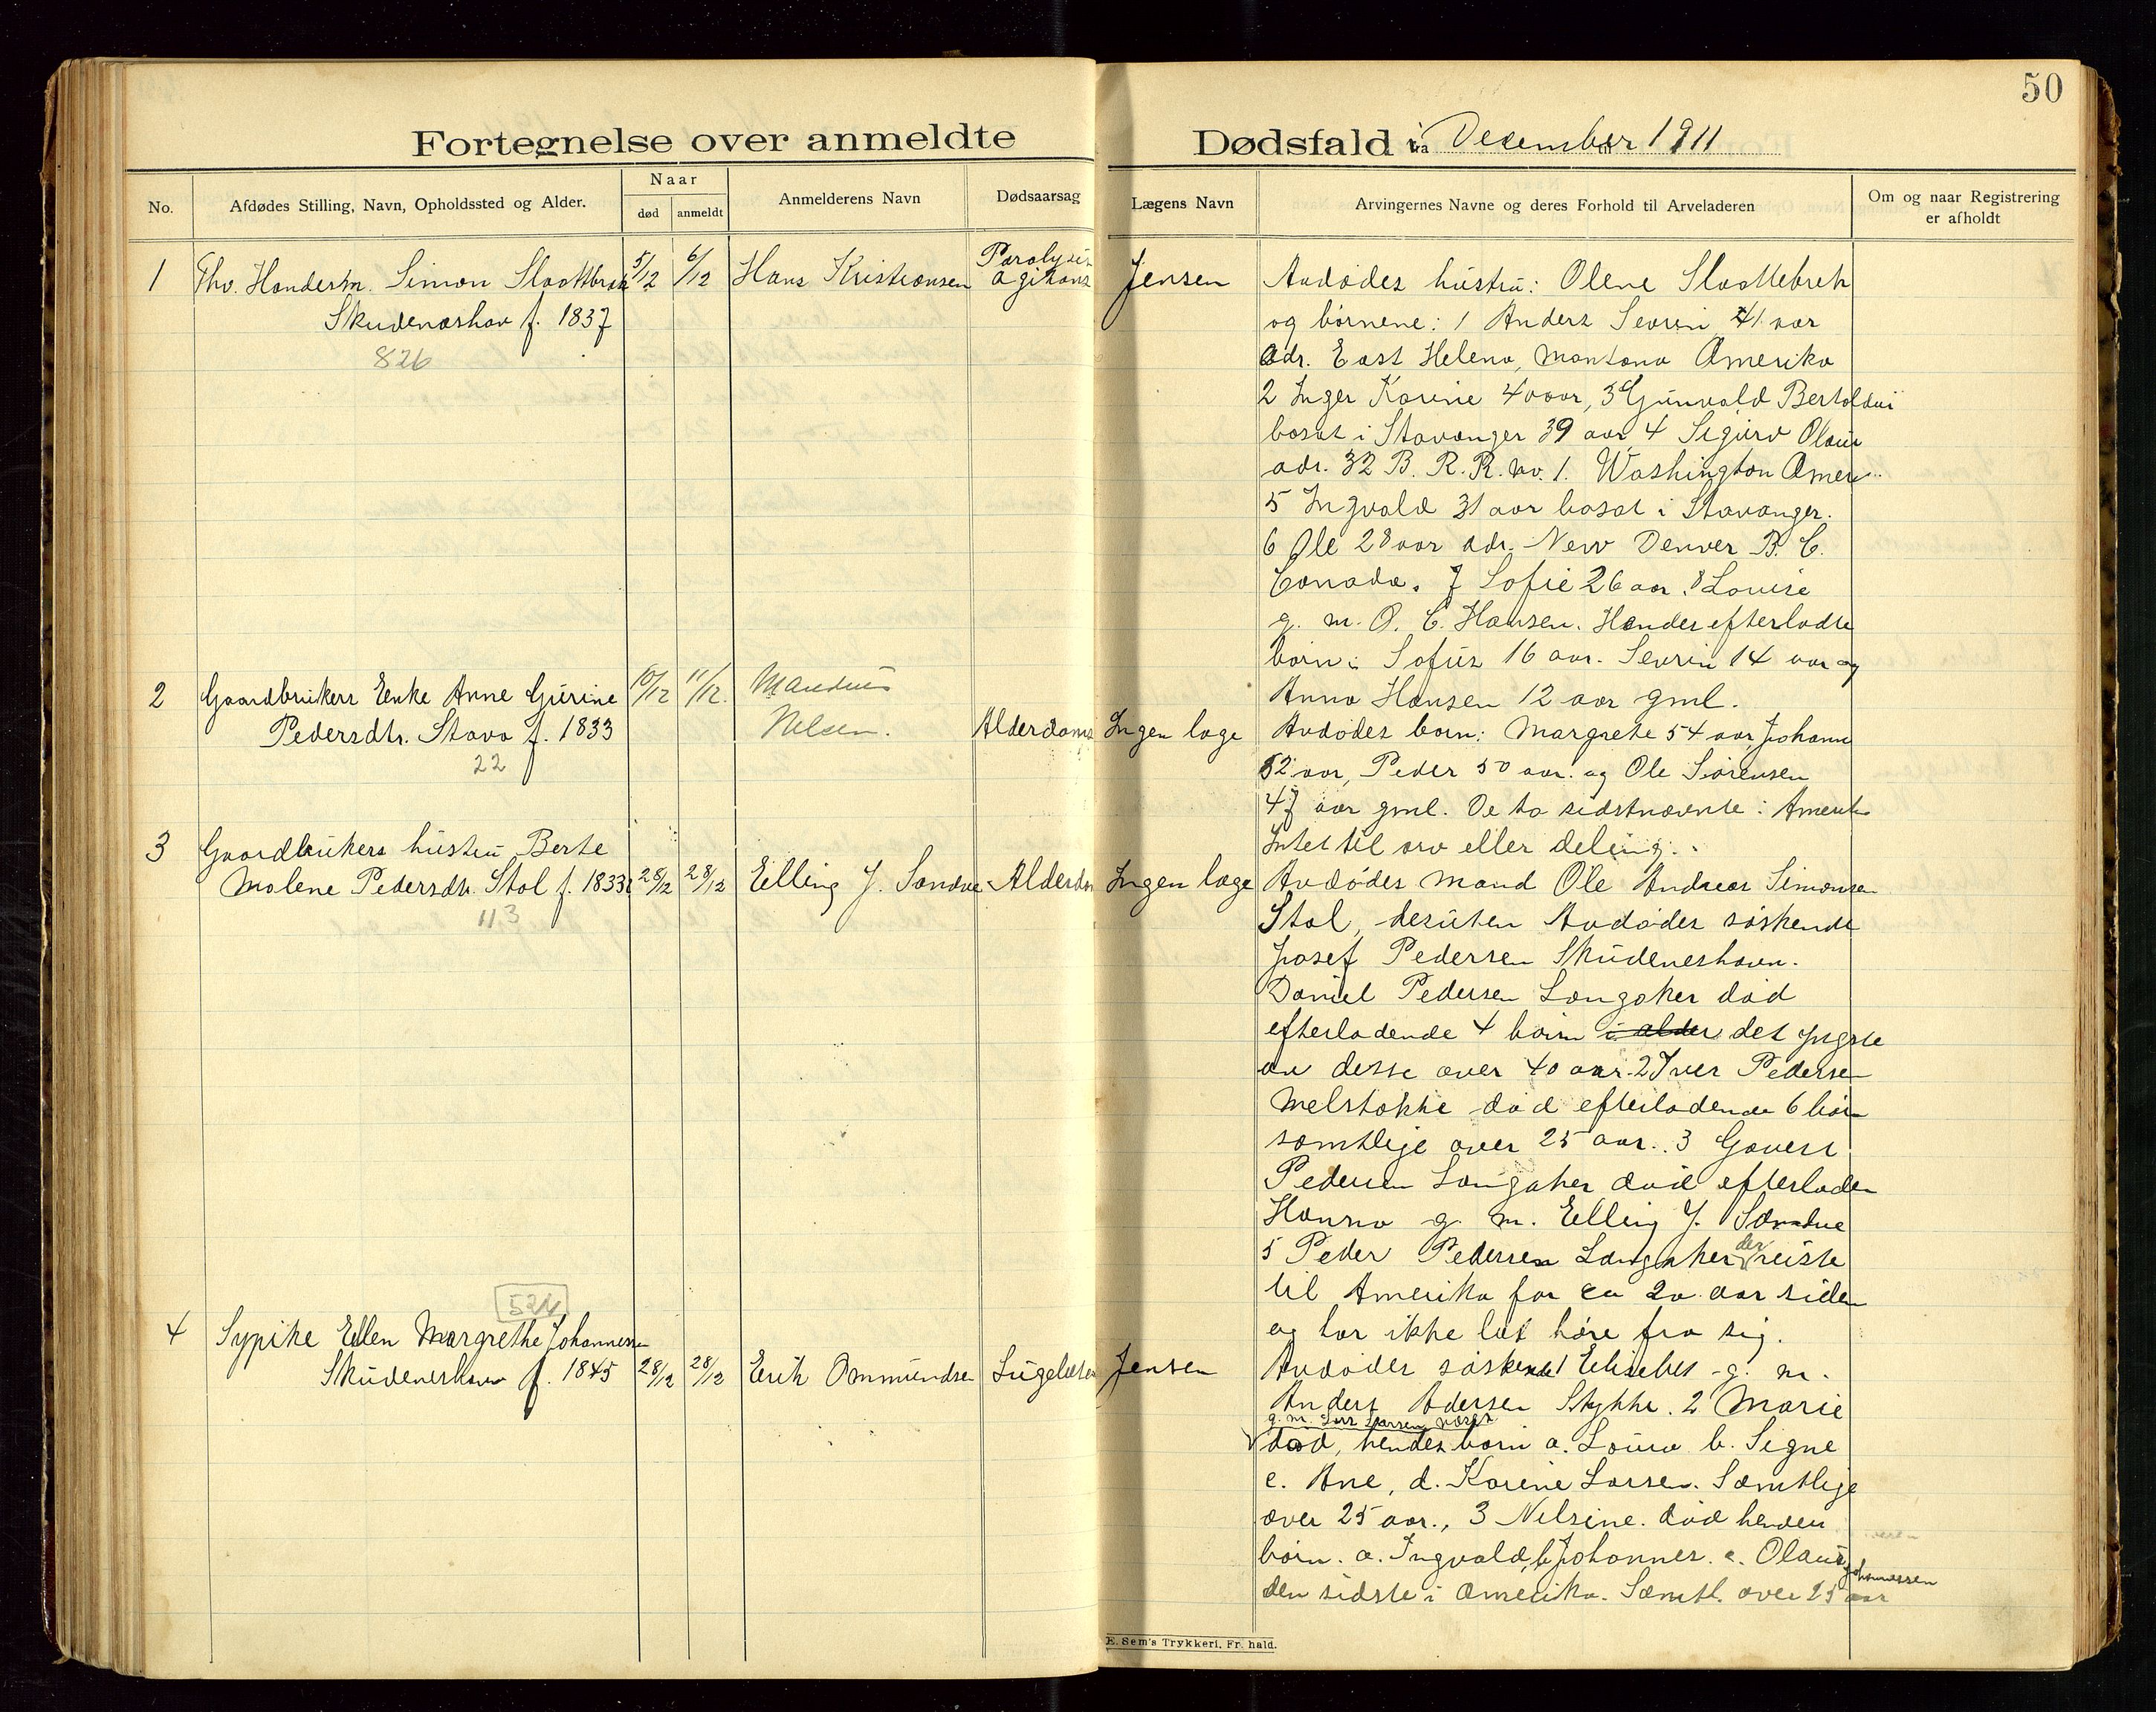 50
Fortegnelse over anmeldte Dødsfald i December 1911
No.
Afdødes Stilling, Navn, Opholdssted og Alder.
Naar
død
anmeldt
Anmelderens Navn
Dødsaarsag
Lægens Navn
Arvingernes Navne og deres Forhold til Arveladeren
Om og naar Registrering
er afholdt
1 Fhv. Handesm. Simon Slaattebrek 5/12 6/12 Hans Kristiansen Paralysis agitans Jensen
Skudeneshav f. 1837
826
Avdødes hustru: Olene Slaattebrek
og børnene: 1 Anders Severin 41 aar
Adr. East Helena, Montana Amerika
2 Inger Karine 40 aar, 3 Gunvald Bertoldus
bosat i Stavanger 39 aar 4 Sigurd Olaus
adr. 32 B. R. R. no. 1. Washington Amer
5 Ingvald 31 aar bosat i Stavanger.
6 Ole 28 aar adr. New Denver B. C.
Canada. 7 Sofie 26 aar. 8 Louise
g. m. O. C. Hansen. Hendes efterladte
børn: Sofus 16 aar. Sevrin 14 aar og
Anna Hansen 12 aar gml.
2 Gaardbrukers Enke Anne Gurine 10/12 11/12. Mandius
Pedersdtr. Stava f. 1833 Nelsen. Alderdoms Ingen læge
22
Avdødes børn: Margrete 54 aar, Johann
52 aar, Peder 50 aar. og Ole Sørensen
47 aar gml. De to sidstnævnte i Amerika
Intet til arv eller deling.
3 Gaardbrukers hustru Berte
Malene Pedersdtr. Stol f. 1833 28/12 28/12 Elling J. Sandve Alderdom Ingen læge
113
Avdødes mand Ole Andreas Simonsen
Stol, desuten Avdødes søskende
Josef Pedersen Skudeneshavn.
Daniel Pedersen Langaker død
efterladende 4 børn i alder det yngste
av desse over 40 aar. 2 Iver Pedersen
Melstokke død efterladende 6 børn
samtlige over 25 aar. 3 Govert
Pedersen Langaker død efterladen
Hanna g. m. Elling J. Sandve
5 Peder Pedersen Langaker der reiste
til Amerika for ca 20 aar siden
og har ikke lat høre fra sig.
524
4 Sypike Ellen Margrethe Johannessen
Skudeneshavn f. 1845 28/12 28/12 Erik Ommundsen Jensen
Avdødes søskende 1 Elisebet g. m.
Anders Adersen Stykke. 2 Marie
g. m. Lars Larsen
død, hendes børn a. Laura b. Signe
c. Ane, d. Karine Larsen. Samtlige
over 25 aar., 3 Nelsine. død hendes
børn. a. Ingvald, b. Johannes. c. Olaus Johannessen
den sidste i Amerika. Samtl. over 25 aar
E. Sem's Trykkeri, Fr. hald.